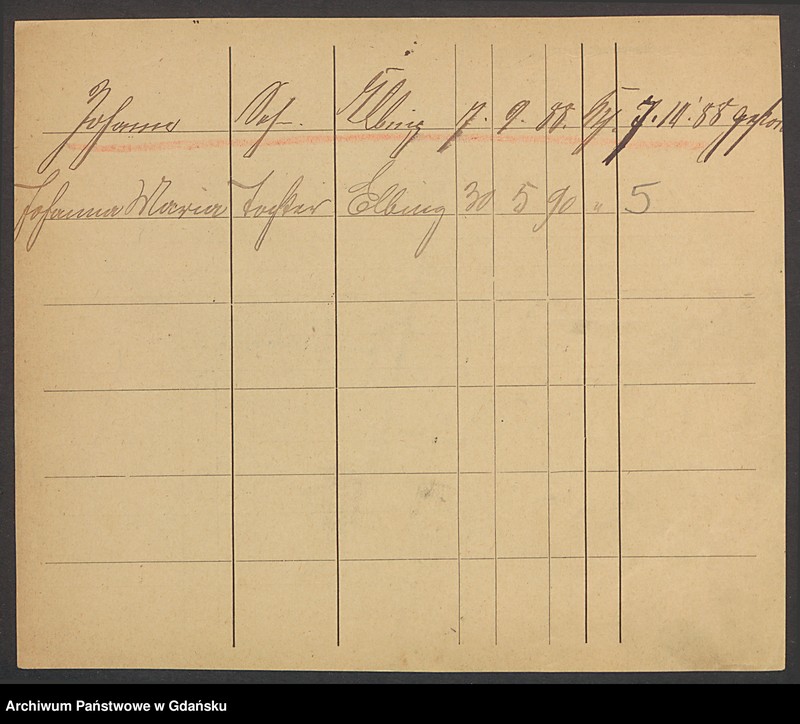 Johann Soh. Elbing 7. 9. 88. 7. 10. 88
Johanna Maria Tochter Elbing 30 5 90 " 5
Archiwum Państwowe w Gdańsku